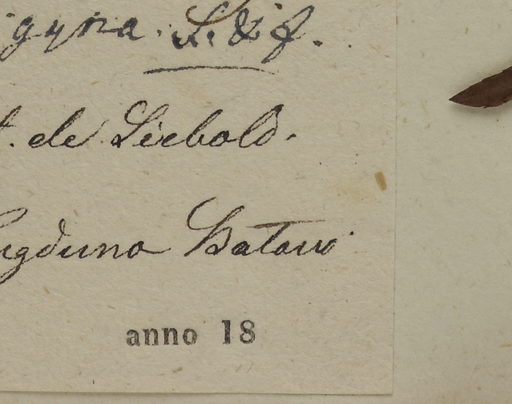 gyna. L. & f.
t. de Siebold.
ugduno Batavo.
anno 18